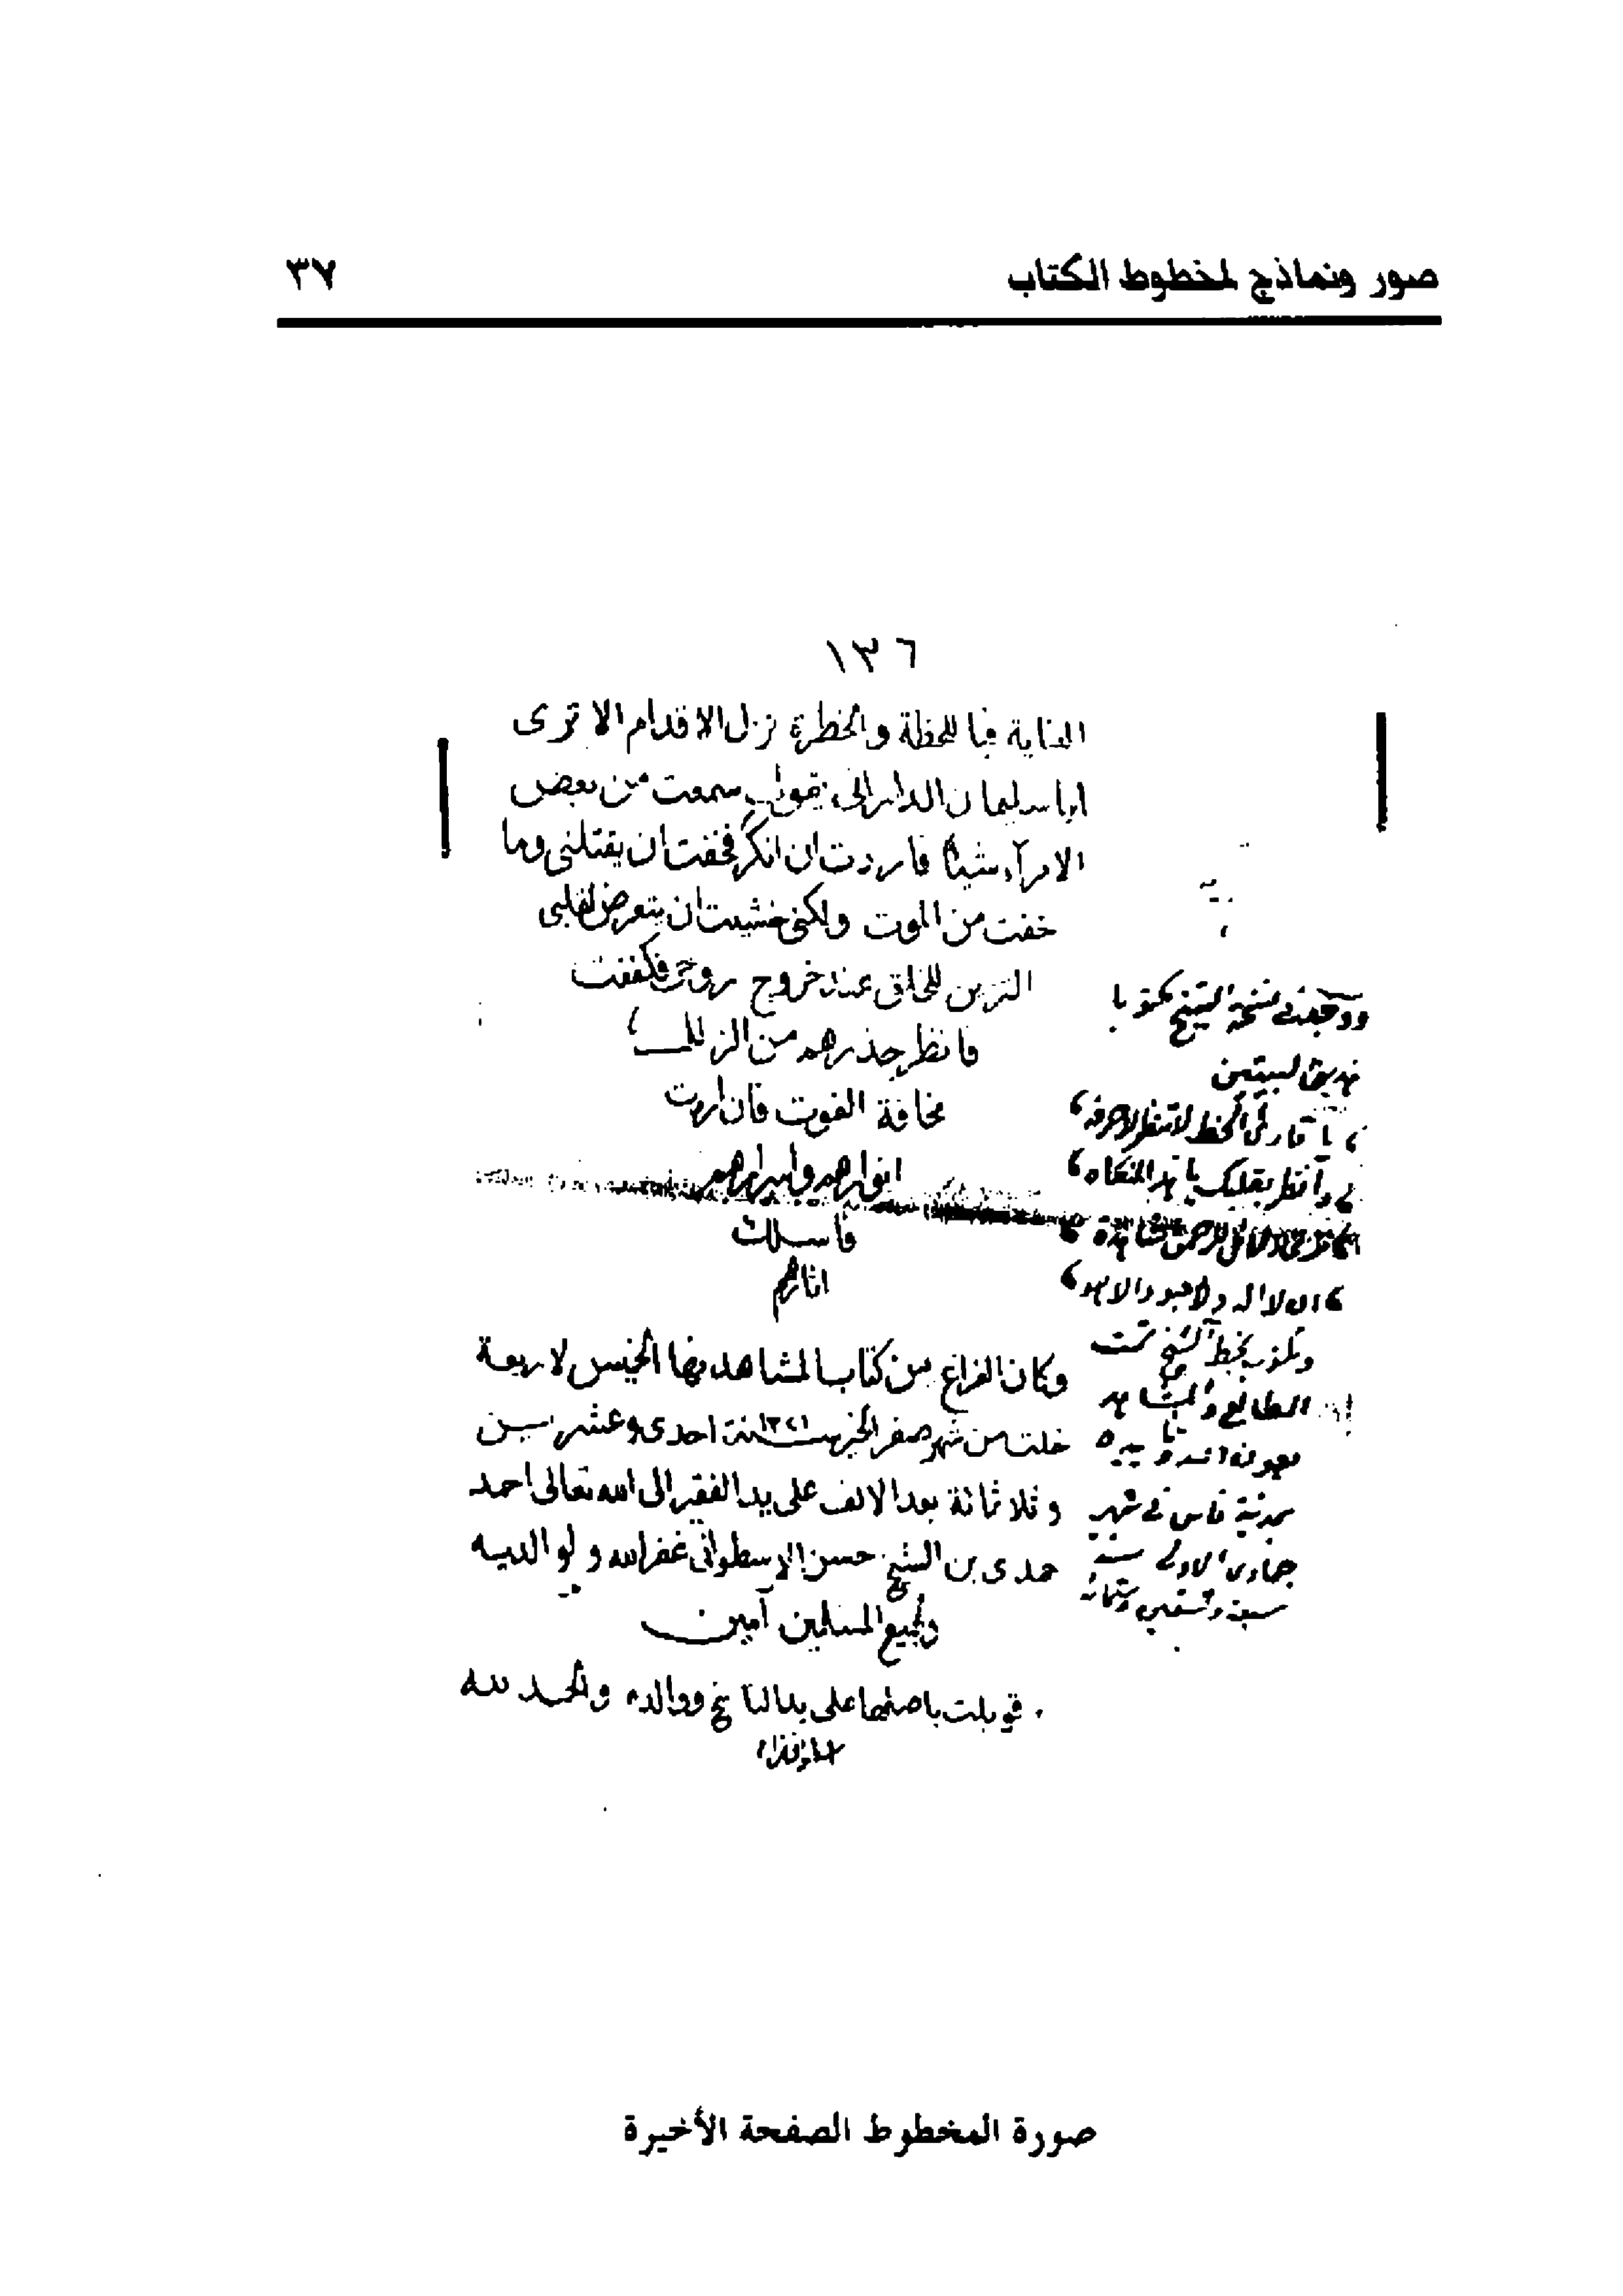 صور ونماذج لمخطوط الكتاب
٣٧
١٣٦
العناية فبا للحظة والخطرة تزل الاقدام الا ترى
ابا سليمان الدارانى يقول سمعت من بعض
الامرآء شيأ فاردت ان انكر فخفت ان يقتلنى وما
خفت من الموت ولكنى خشيت ان يتعرض لقلبى
التزين للخلق عند خروج روحى فكففت
فانظر حذرهم من الزلل
مخافة الفوت فان اردت
انوارهم واسرارهم
فاسلك
اثارهم
وكان الفراغ من كتاب المشاهد نهار الخميس لاربعة
خلت من شهر صفر الخير سنة ١٣٢١ احدى وعشرين
وثلاثمائة بعد الالف على يد الفقير الى الله تعالى احمد
حمدى بن الشيخ حسن الاسطوانى غفر الله له ولوالديه
ولجميع المسلمين آمين
قوبلت باصلها على يد الناسخ ووالده والحمد لله
ووجدت فى نسخة الشيخ مكتوبا
هذين البيتين
يا قارئ الخط لا تنظر لاحرفه
وانظر بقلبك يا
ان لا اله ولا معبود الا هو
بخط الشيخ تمت
بمدينة فاس فى شهر
جمادى الاولى سنة
صورة المخطوط الصفحة الأخيرة